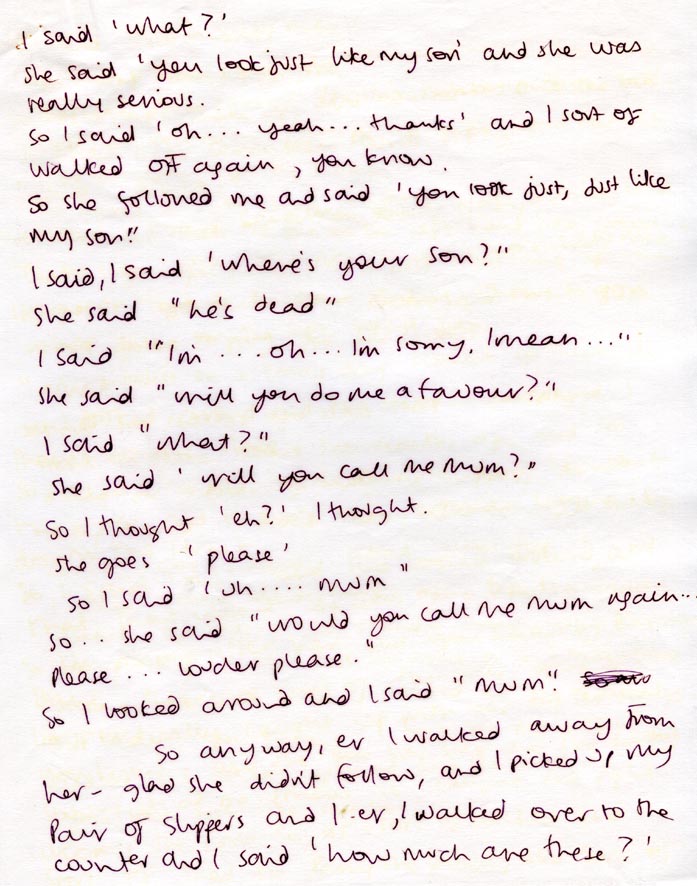 I said 'what?'
She said 'you look just like my son' and she was
really serious.
So I said 'oh... yeah... thanks' and I sort of
walked off again, you know.
So she followed me and said 'you look just, just like
my son!'
I said, I said 'where's your son?"
She said "he's dead"
I said "'I'm ... oh... I'm sorry, I mean..."
She said "will you do me a favour?"
I said "what?"
She said 'will you call me mum?"
So I thought 'eh?' I thought.
She goes 'please'
So I said 'uh.... mum"
So.. she said "would you call me mum again...
please... louder please."
So I looked around and I said "mum".
So anyway, er I walked away from
her - glad she didn't follow, and I picked up my
pair of slippers and I-er, I walked over to the
counter and I said 'how much are these?'